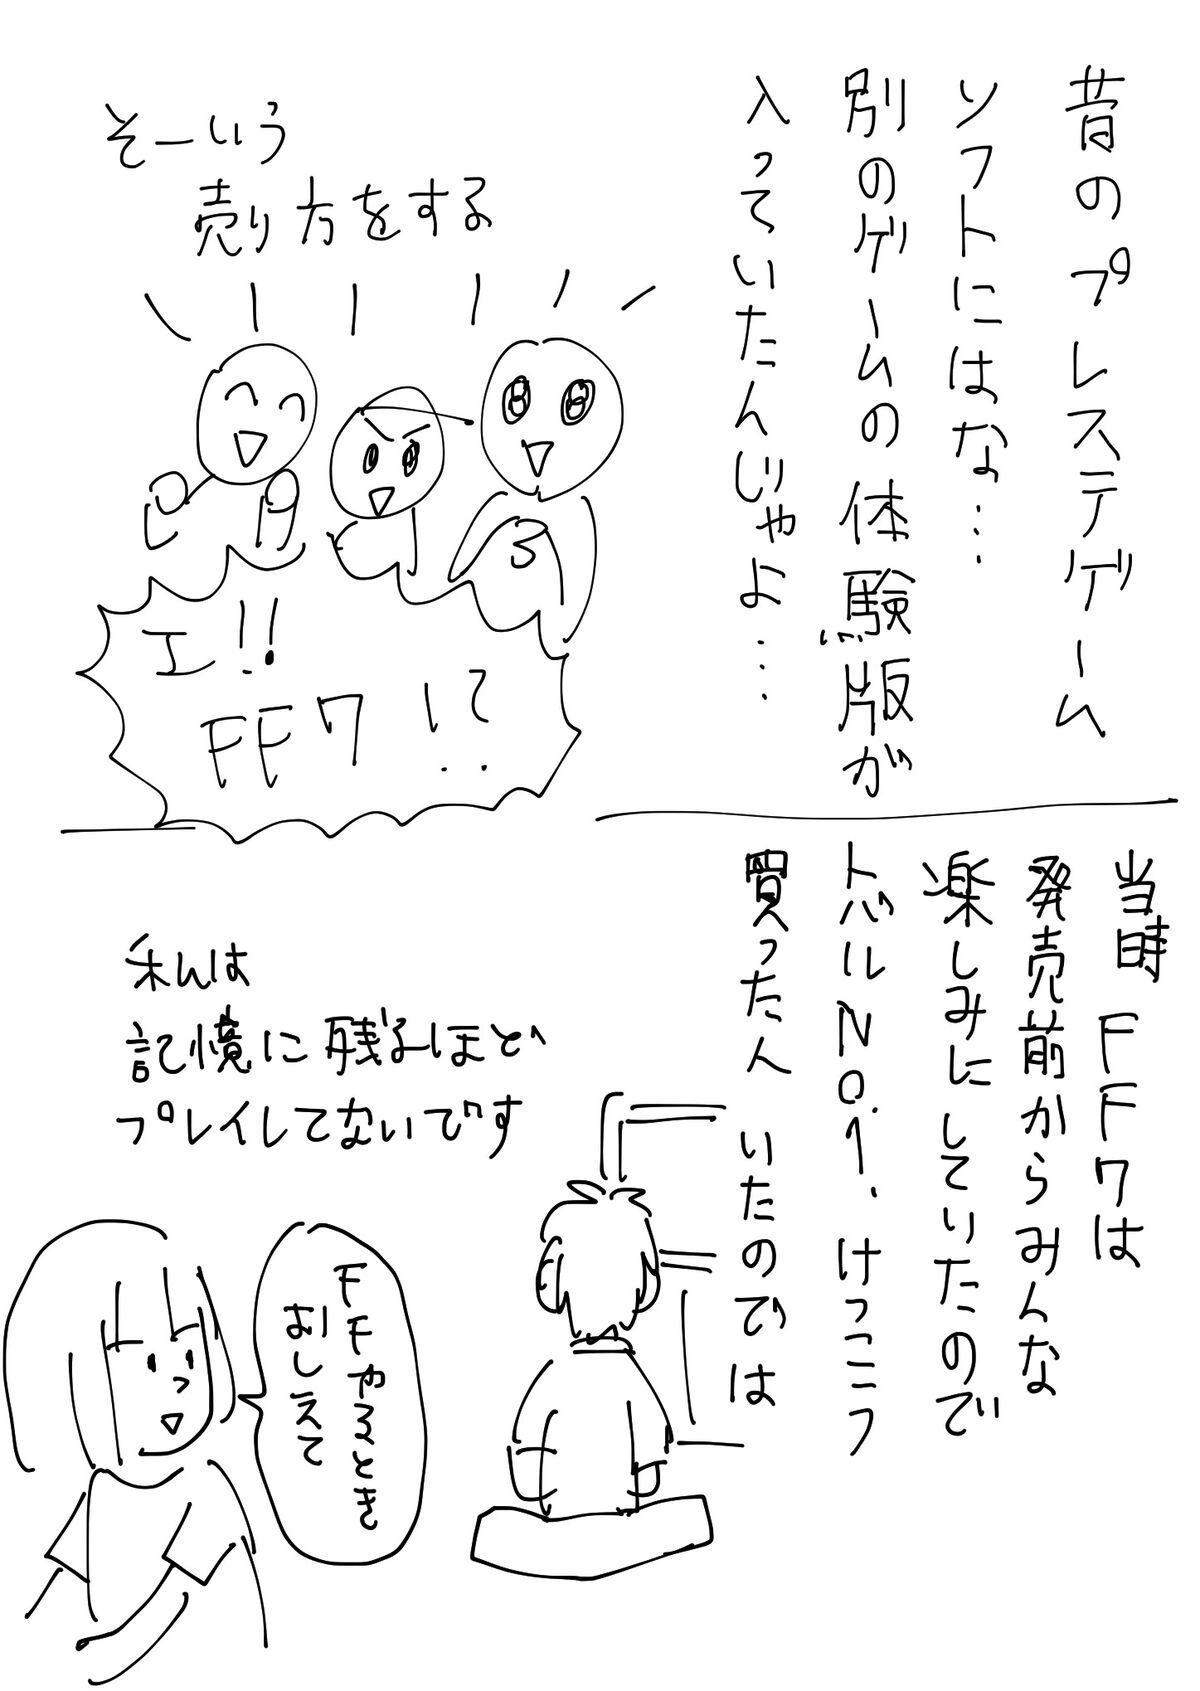 昔のプレステゲーム
ソフトにはな…
別のゲームの体験版が
入っていたんじゃよ…
そーいう
売り方をする
エ!!
FF7!?
当時FF7は
発売前からみんな
楽しみにしていたので
トバルNo.1.けっこう
買った人いたのでは
私は
記憶に残るほど
プレイしてないです
FFやるとき
おしえて